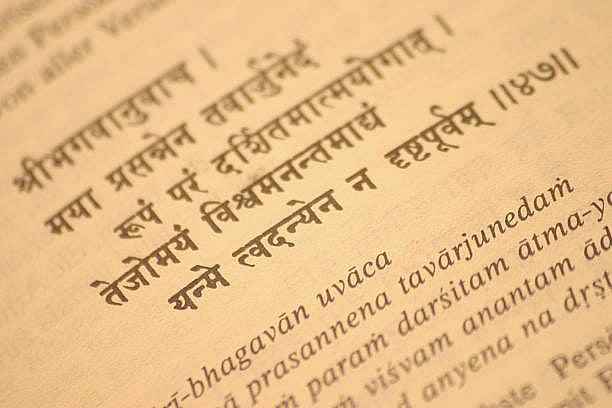 aller
श्रीभगवानुवाच ।
मया प्रसन्नेन तवार्जुनेदं
रूपं परं दर्शितमात्मयोगात् ।
तेजोमयं विश्वमनन्तमाद्यं
यन्मे त्वदन्येन न दृष्टपूर्वम् ॥४७॥
rī-bhagavān uvāca
ā prasannena tavārjunedaṁ
ṁ paraṁ darśitam ātma-yo
ṁ viśvam anantam ād
d anyena na dṛṣṭ
Perso